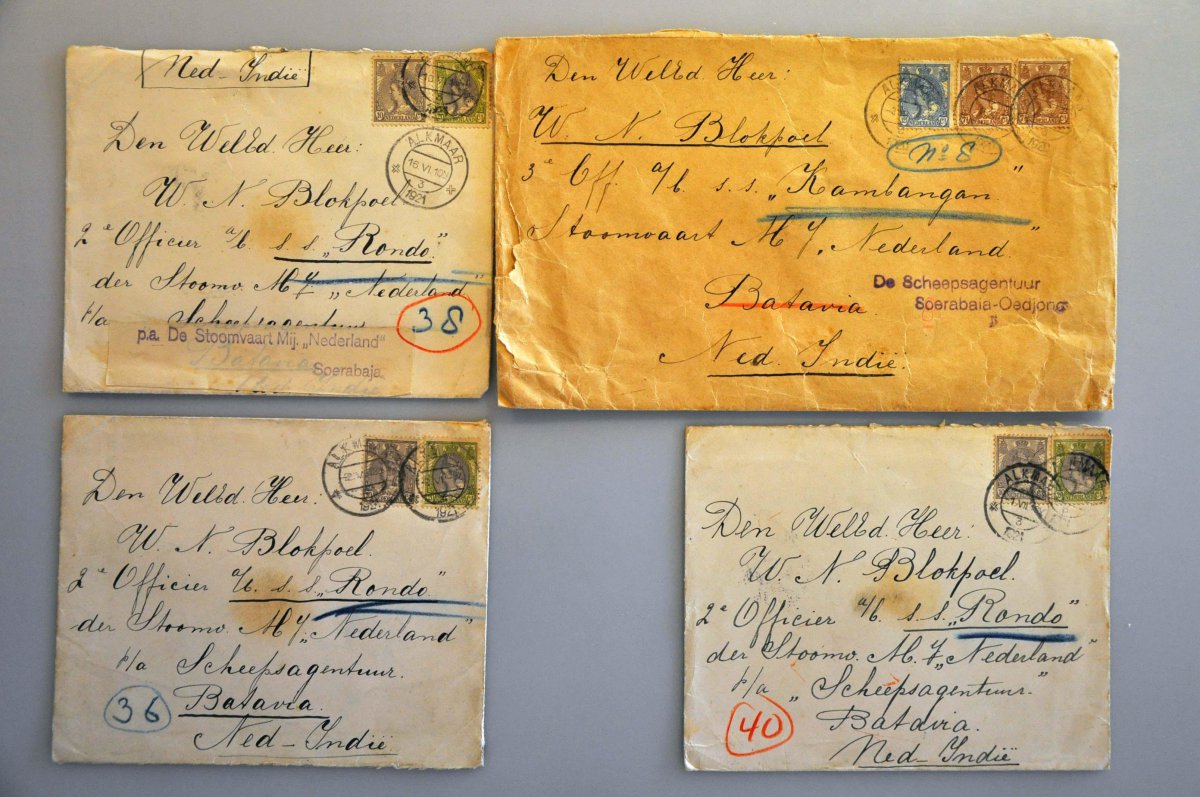 Ned-Indië
Den WelEd. Heer:
W. N. Blokpoel
2e Officier a/b s.s. „Rondo"
der Stoomv. Mij „Nederland"
p/a Scheepsagentuur
38
p.a. De Stoomvaart Mij. „Nederland"
Soerabaja
Batavia
Ned Indië
ALKMAAR
16.VI.10
3
1921
Den WelEd. Heer:
W. N. Blokpoel
No 8
3e Off. a/b s.s. „Kambangan"
Stoomvaart Mij „Nederland"
Batavia
De Scheepsagentuur
Soerabaia-Oedjong
Ned. Indië.
Den WelEd. Heer:
W. N. Blokpoel.
2e Officier a/b s.s. „Rondo"
der Stoomv. Mij „Nederland"
p/a Scheepsagentuur.
36
Batavia.
Ned-Indië
ALKM
1921
1921
Den WelEd. Heer:
W. N. Blokpoel.
2e Officier a/b s.s. „Rondo"
der Stoomv. Mij „Nederland"
p/a „Scheepsagentuur."
40
Batavia
Ned-Indië
ALKMAAR
1921